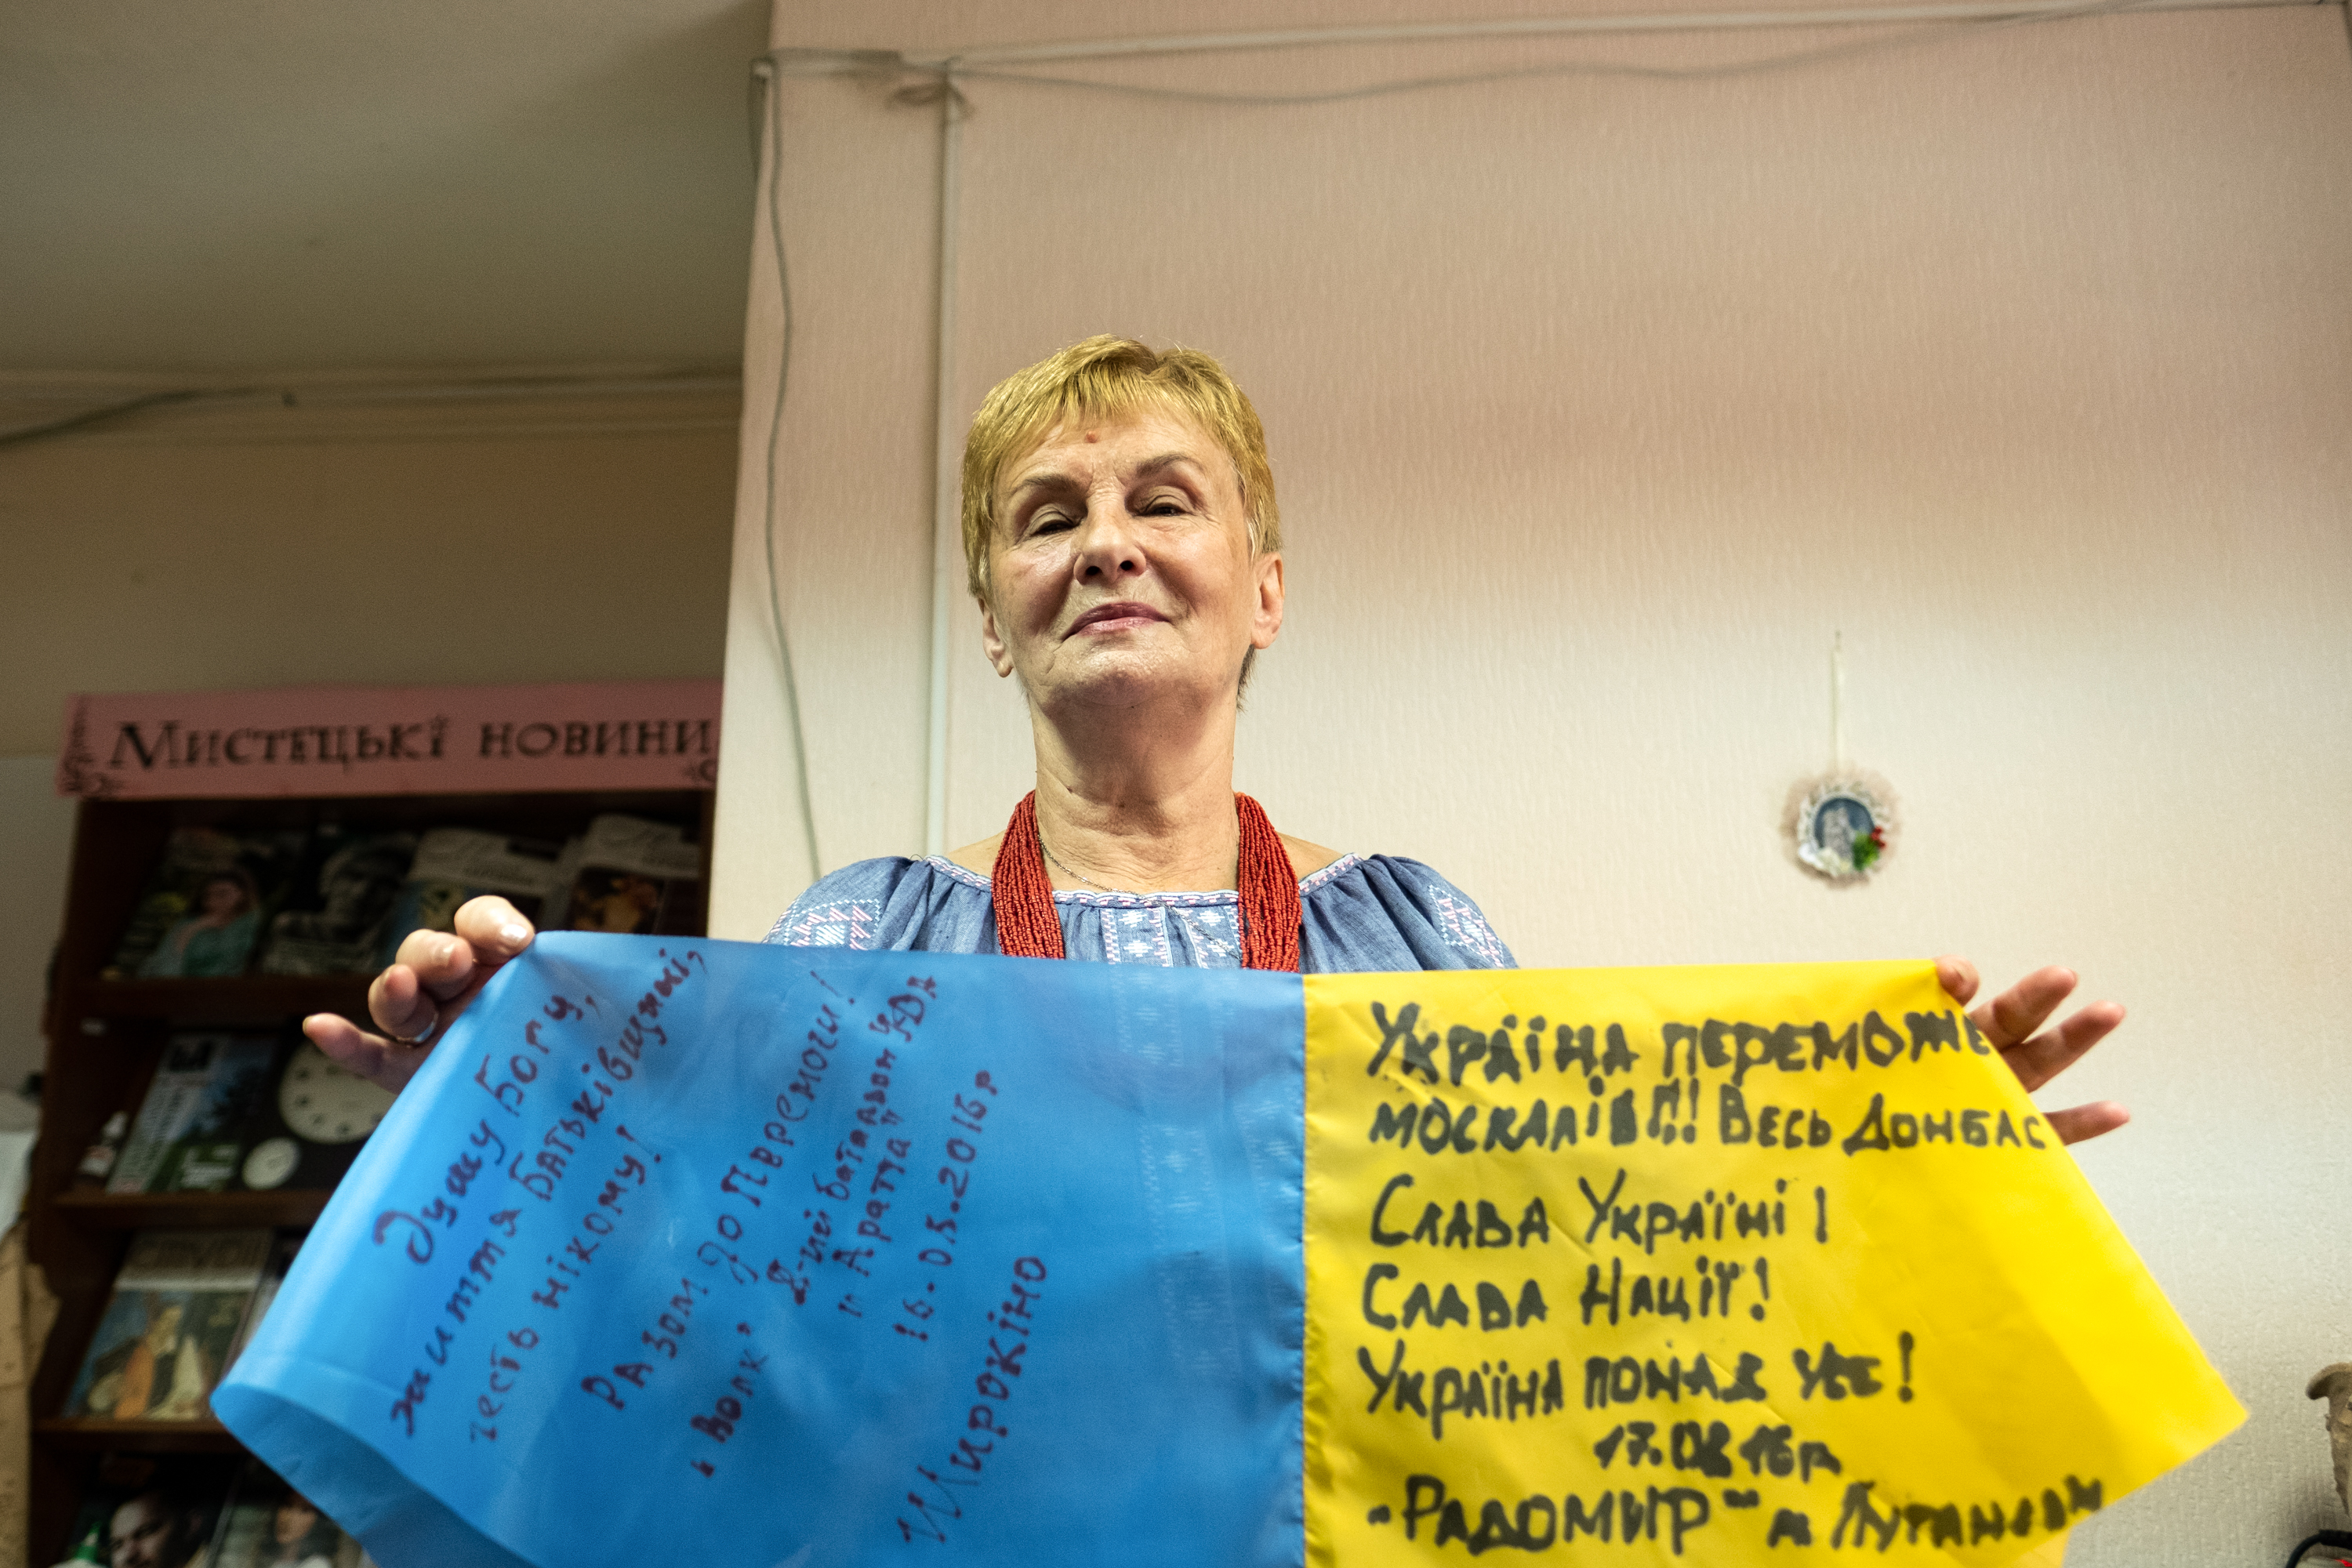 Мистецькі новини
Душу Богу,
життя Батьківщині,
честь нікому!
Разом до Перемоги!
"Волк", 8-мий батальон УДА
"Аратта"
16.05.2016р
Широкіно
Україна переможе
москалів!!! Весь Донбас
Слава Україні!
Слава Нації!
Україна понад усе!
17.08 16р
"Радомир" м